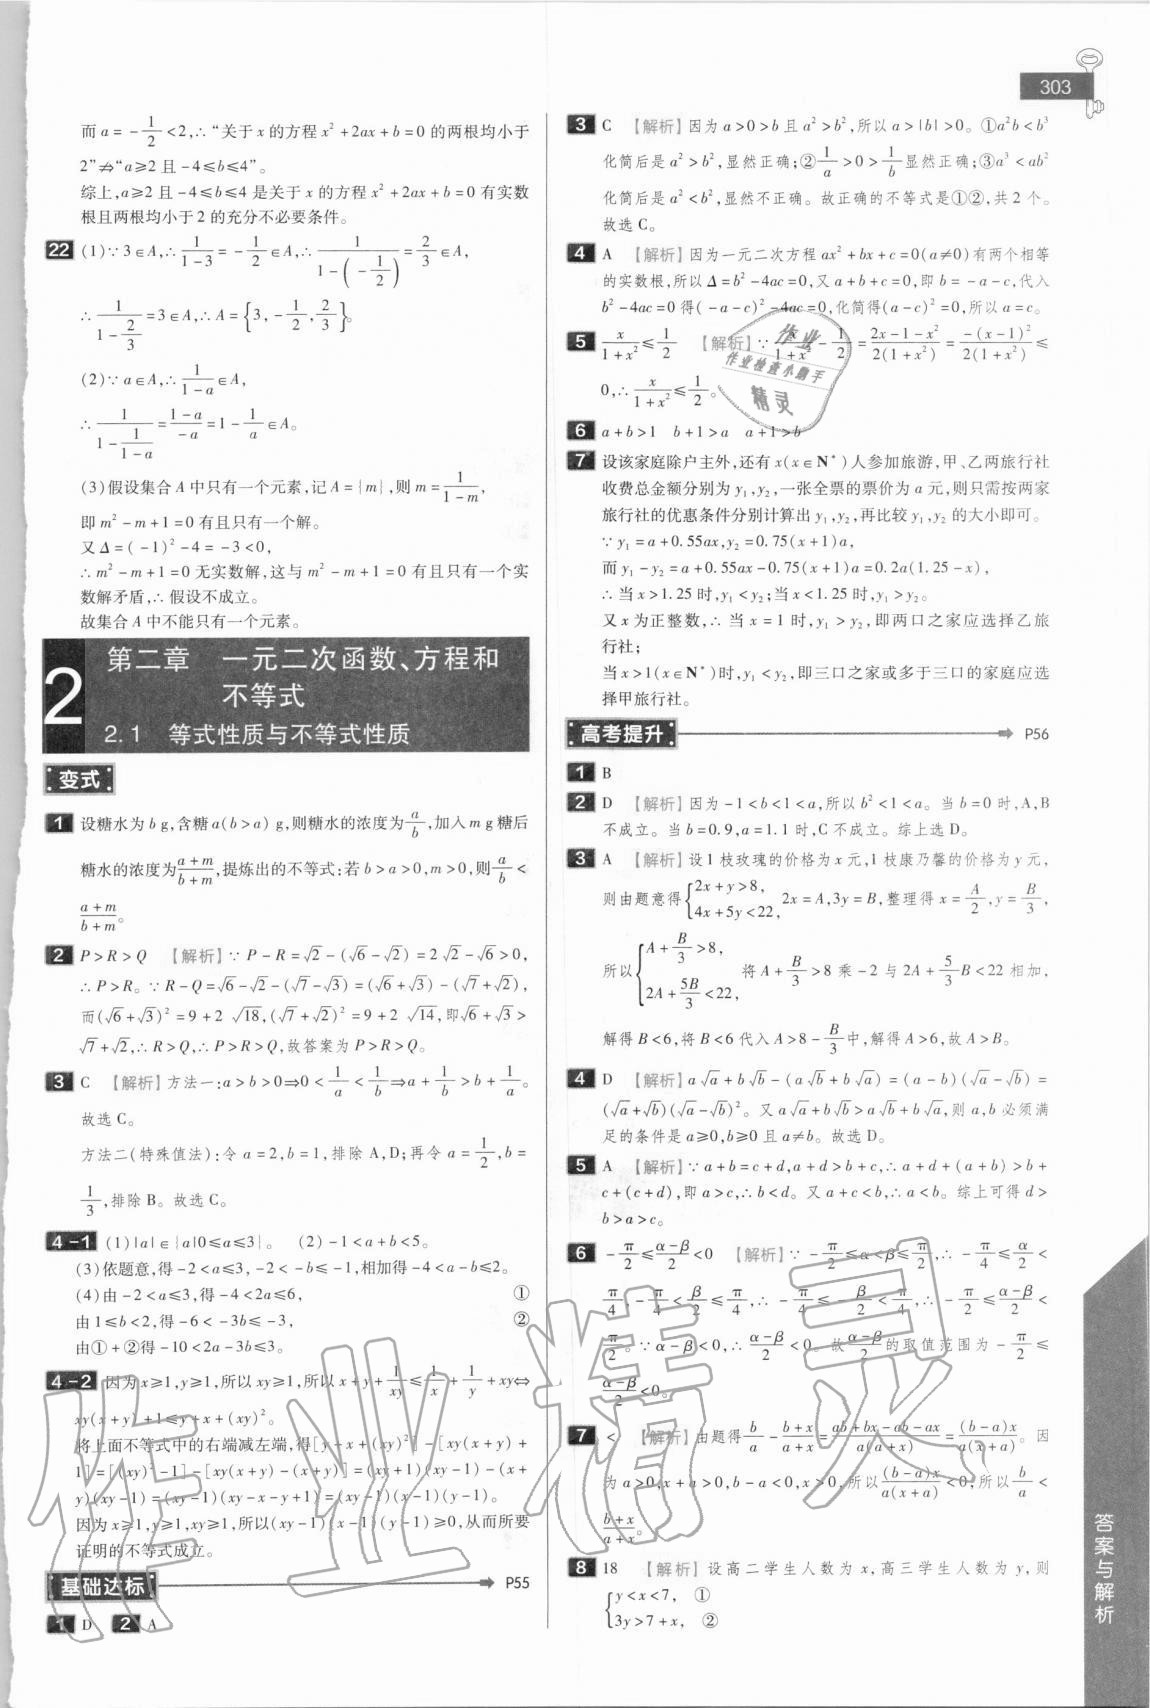 303
而 a = -1/2 < 2,∴ “关于 x 的方程 x²+2ax+b=0 的两根均小于
2”⇏“a≥2 且 -4≤b≤4”。
综上,a≥2 且 -4≤b≤4 是关于 x 的方程 x²+2ax+b=0 有实数
根且两根均小于 2 的充分不必要条件。
22 (1)∵ 3∈A,∴ 1/(1-3) = -1/2 ∈A,∴ 1/(1-(-1/2)) = 2/3 ∈A,
∴ 1/(1-2/3) =3∈A,∴ A={3,-1/2,2/3}。
(2)∵ a∈A,∴ 1/(1-a) ∈A,
∴ 1/(1-1/(1-a)) = (1-a)/(-a) = 1-1/a ∈A。
(3)假设集合 A 中只有一个元素,记 A={m},则 m=1/(1-m),
即 m²-m+1=0 有且只有一个解。
又 Δ=(-1)²-4=-3<0,
∴ m²-m+1=0 无实数解,这与 m²-m+1=0 有且只有一个实
数解矛盾,∴ 假设不成立。
故集合 A 中不能只有一个元素。
2 第二章 一元二次函数、方程和
不等式
2.1 等式性质与不等式性质
变式
1 设糖水为 b g,含糖 a(b>a) g,则糖水的浓度为 a/b,加入 m g 糖后
糖水的浓度为 (a+m)/(b+m),提炼出的不等式:若 b>a>0,m>0,则 a/b <
(a+m)/(b+m)。
2 P>R>Q 【解析】∵ P-R=√2-(√6-√2)=2√2-√6>0,
∴ P>R。∵ R-Q=√6-√2-(√7-√3)=(√6+√3)-(√7+√2),
而(√6+√3)²=9+2√18,(√7+√2)²=9+2√14,即√6+√3>
√7+√2,∴ R>Q,∴ P>R>Q,故答案为 P>R>Q。
3 C 【解析】方法一:a>b>0⇒0<1/a<1/b⇒a+1/b>b+1/a。
故选 C。
方法二(特殊值法):令 a=2,b=1,排除 A,D;再令 a=1/2,b=
1/3,排除 B。故选 C。
4-1 (1)|a|∈{a|0≤a≤3}。 (2)-1<a+b<5。
(3)依题意,得-2<a≤3,-2<-b≤-1,相加得-4<a-b≤2。
(4)由-2<a≤3,得-4<2a≤6, ①
由 1≤b<2,得-6<-3b≤-3, ②
由①+②得-10<2a-3b≤3。
4-2 因为 x≥1,y≥1,所以 xy≥1,所以 x+y+1/xy≤1/x+1/y+xy⇔
xy(x+y)+1≤y+x+(xy)²。
将上面不等式中的右端减左端,得[y+x+(xy)²]-[xy(x+y)+
1]=[(xy)²-1]-[xy(x+y)-(x+y)]=(xy+1)(xy-1)-(x+
y)(xy-1)=(xy-1)(xy-x-y+1)=(xy-1)(x-1)(y-1)。
因为 x≥1,y≥1,xy≥1,所以(xy-1)(x-1)(y-1)≥0,从而所要
证明的不等式成立。
基础达标 P55
1 D 2 A
3 C 【解析】因为 a>0>b 且 a²>b²,所以 a>|b|>0。①a²b<b³
化简后是 a²>b²,显然正确;②1/a>0>1/b显然正确;③a³<ab²
化简后是 a²<b²,显然不正确。故正确的不等式是①②,共 2 个。
故选 C。
4 A 【解析】因为一元二次方程 ax²+bx+c=0(a≠0)有两个相等
的实数根,所以 Δ=b²-4ac=0,又 a+b+c=0,即 b=-a-c,代入
b²-4ac=0 得(-a-c)²-4ac=0,化简得(a-c)²=0,所以 a=c。
5 x/(1+x²)≤1/2 【解析】∵ x/(1+x²)-1/2=(2x-1-x²)/(2(1+x²))=-(x-1)²/(2(1+x²))≤
0,∴ x/(1+x²)≤1/2。
6 a+b>1 b+1>a a+1>b
7 设该家庭除户主外,还有 x(x∈N*)人参加旅游,甲、乙两旅行社
收费总金额分别为 y₁,y₂,一张全票的票价为 a 元,则只需按两家
旅行社的优惠条件分别计算出 y₁,y₂,再比较 y₁,y₂ 的大小即可。
∵ y₁=a+0.55ax,y₂=0.75(x+1)a,
而 y₁-y₂=a+0.55ax-0.75(x+1)a=0.2a(1.25-x),
∴ 当 x>1.25 时,y₁<y₂;当 x<1.25 时,y₁>y₂。
又 x 为正整数,∴ 当 x=1 时,y₁>y₂,即两口之家应选择乙旅
行社;
当 x>1(x∈N*)时,y₁<y₂,即三口之家或多于三口的家庭应选
择甲旅行社。
高考提升 P56
1 B
2 D 【解析】因为-1<b<1<a,所以 b²<1<a。当 b=0 时,A,B
不成立。当 b=0.9,a=1.1 时,C 不成立。综上选 D。
3 A 【解析】设 1 枝玫瑰的价格为 x 元,1 枝康乃馨的价格为 y 元,
则由题意得{2x+y>8, 4x+5y<22, 2x=A,3y=B,整理得 x=A/2,y=B/3,
所以{A+B/3>8, 2A+5B/3<22, 将 A+B/3>8 乘-2 与 2A+5/3B<22 相加,
解得 B<6,将 B<6 代入 A>8-B/3中,解得 A>6,故 A>B。
4 D 【解析】a√a+b√b-(a√b+b√a)=(a-b)(√a-√b)=
(√a+√b)(√a-√b)²。又 a√a+b√b>a√b+b√a,则 a,b 必须满
足的条件是 a≥0,b≥0 且 a≠b。故选 D。
5 A 【解析】∵ a+b=c+d,a+d>b+c,∴ a+d+(a+b)>b+
c+(c+d),即 a>c,∴ b<d。又 a+c<b,∴ a<b。综上可得 d>
b>a>c。
6 -π/2≤(α-β)/2<0 【解析】∵ -π/2≤α<β≤π/2,∴ -π/4≤α/2<
π/4,-π/4<β/2≤π/4,∴ -π/4≤-β/2<π/4,∴ -π/2≤(α-β)/2<
π/2。∵ α-β<0,∴ (α-β)/2<0。故(α-β)/2的取值范围为-π/2≤
(α-β)/2<0。
7 < 【解析】由题得 b/a-(b+x)/(a+x)=(ab+bx-ab-ax)/(a(a+x))=(b-a)x/(a(x+a))。因
为 a>0,x+a>0,b-a<0,x>0,所以(b-a)x/(a(x+a))<0,所以 b/a<
(b+x)/(a+x)。
8 18 【解析】设高二学生人数为 x,高三学生人数为 y,则
{y<x<7, ①
3y>7+x, ②
答案与解析
作业
作业检查小帮手
精灵
作业精灵